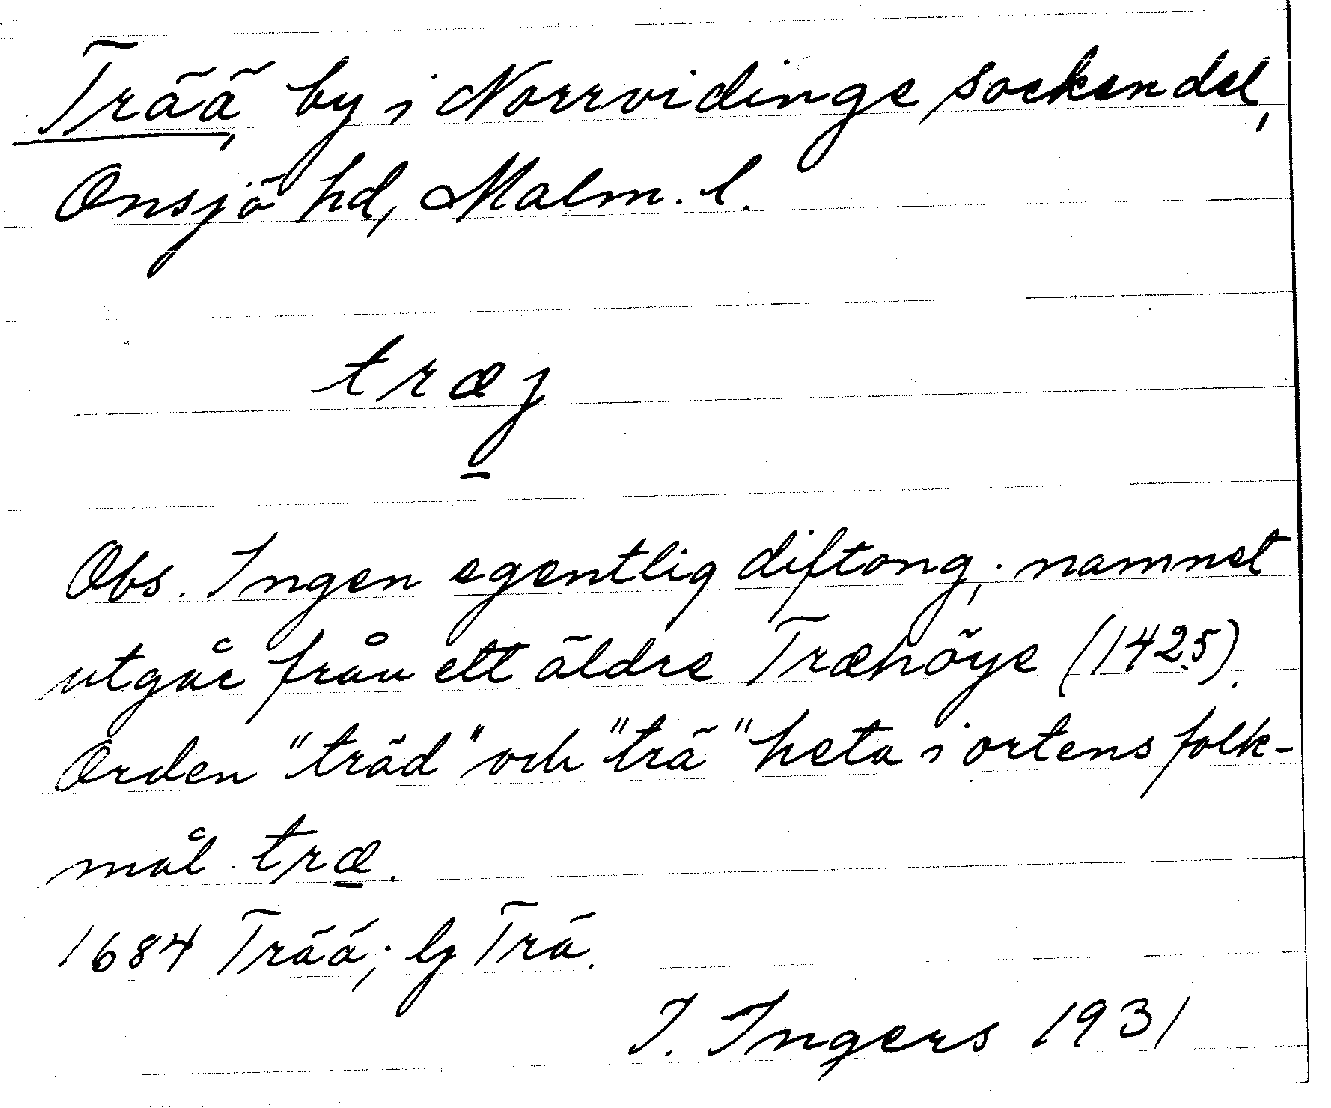 Trää, by i Norrvidinge sockendel,
Onsjö hd, Malm. l.
træj
Obs. Ingen egentlig diftong; namnet
utgår från ett äldre Træhöye (1425).
Orden "träd" och "trä" heta i ortens folk-
mål træ.
1684 Trää; ej Trä.
I. Ingers 1931